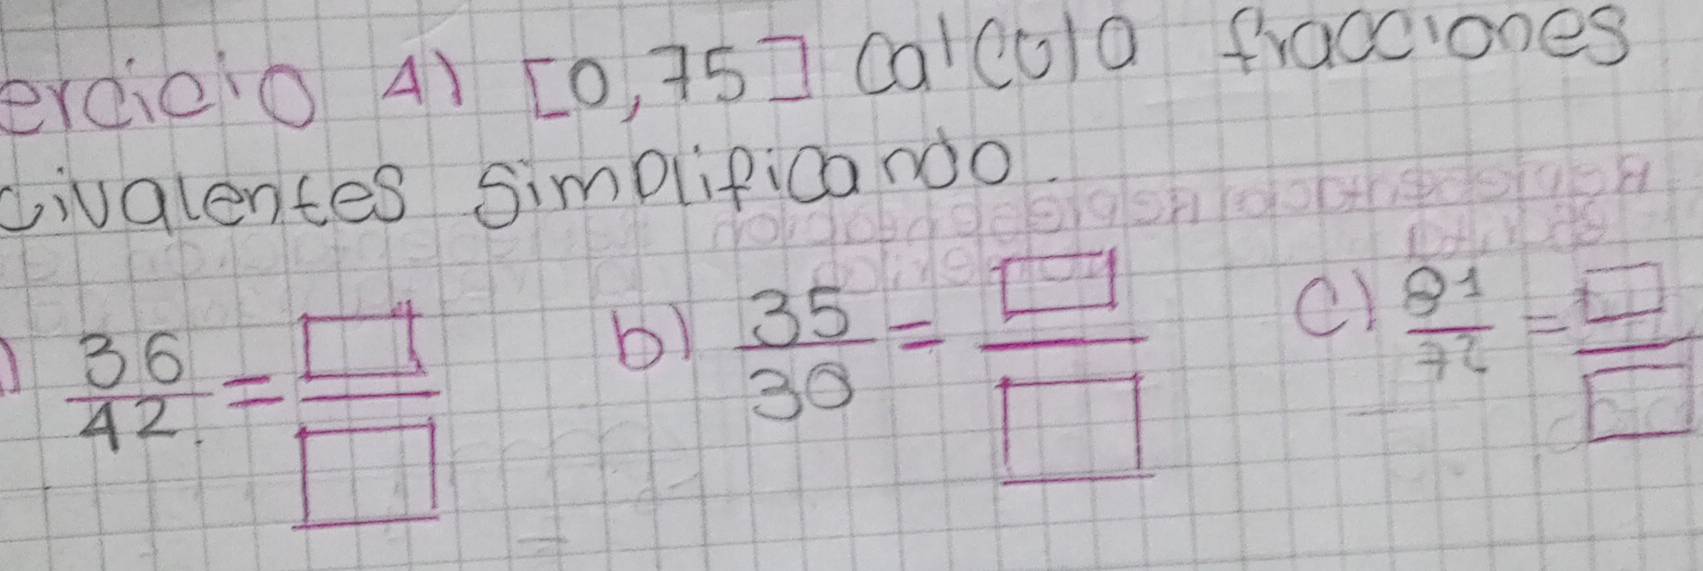 ercicio A) [0,75] Calcula fracciones
ivalentes simplificando.
) 36/42 = □/□ b) 35/30 = □/□ c) 81/72 = □/□